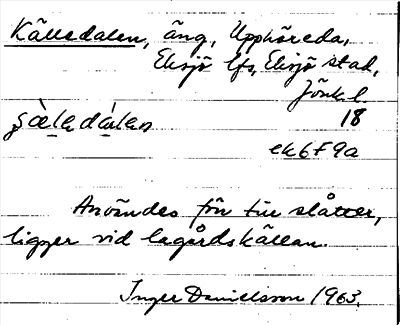 Källedalen, äng, Upphöreda,
Eksjö lfs, Eksjö stad,
Jönk. l.
18
ek6F9a
Användes förr till slåtter,
ligger vid lagårdskällan.
Inger Danielsson 1963.